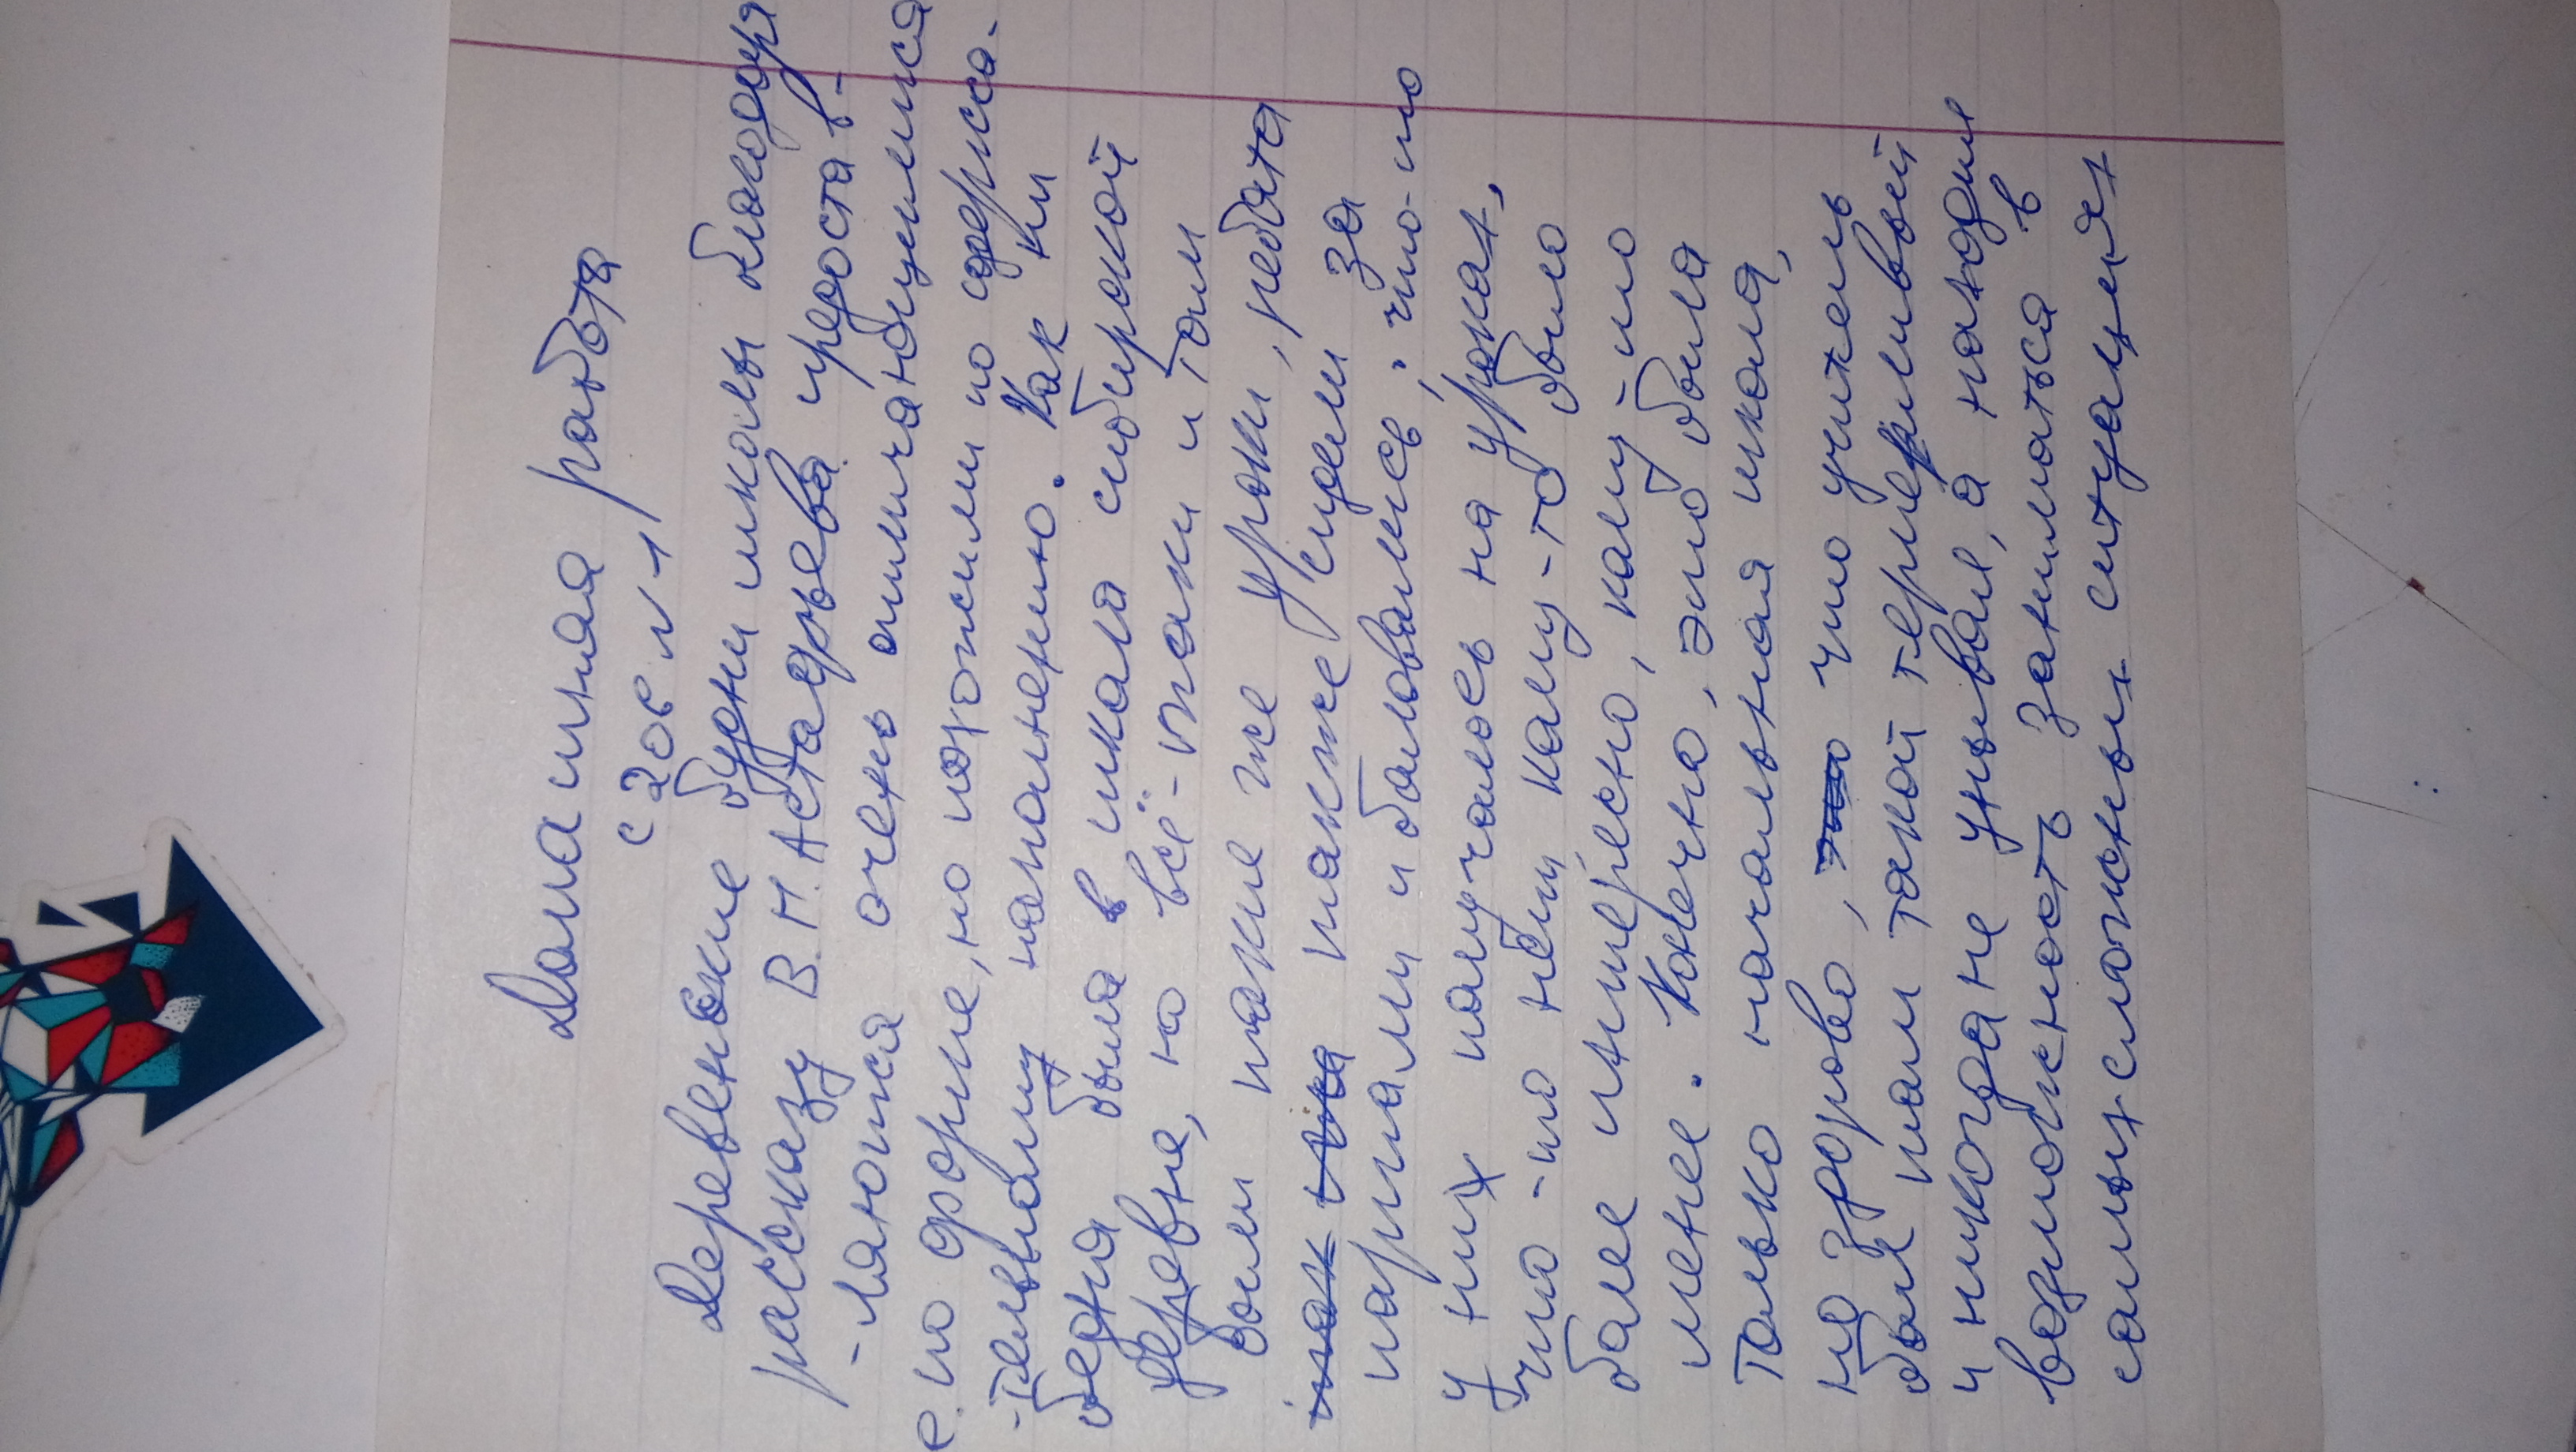 Домашняя работа
с 206 N 1
Деревенские будни школы благодоря
рассказу В.П. Астафьева предостав-
-ляются очень отличающимися
по форме, но похожими по содержа-
-тельному наполнению. Как ни
бедна была в школа сибирской
деревне, но всё-таки и там
были такие же уроки, ребята
также сидели за
партами и баловались; что-то
у них получалось на уроках,
что-то нет, кому-то было
более интересно, кому-то
менее. Конечно, это была
только начальная школа,
но здорово, это что учитель
был там такой терпеливый
и никогда не унывал, а находил
возможность заниматься в
самых сложных ситуациях